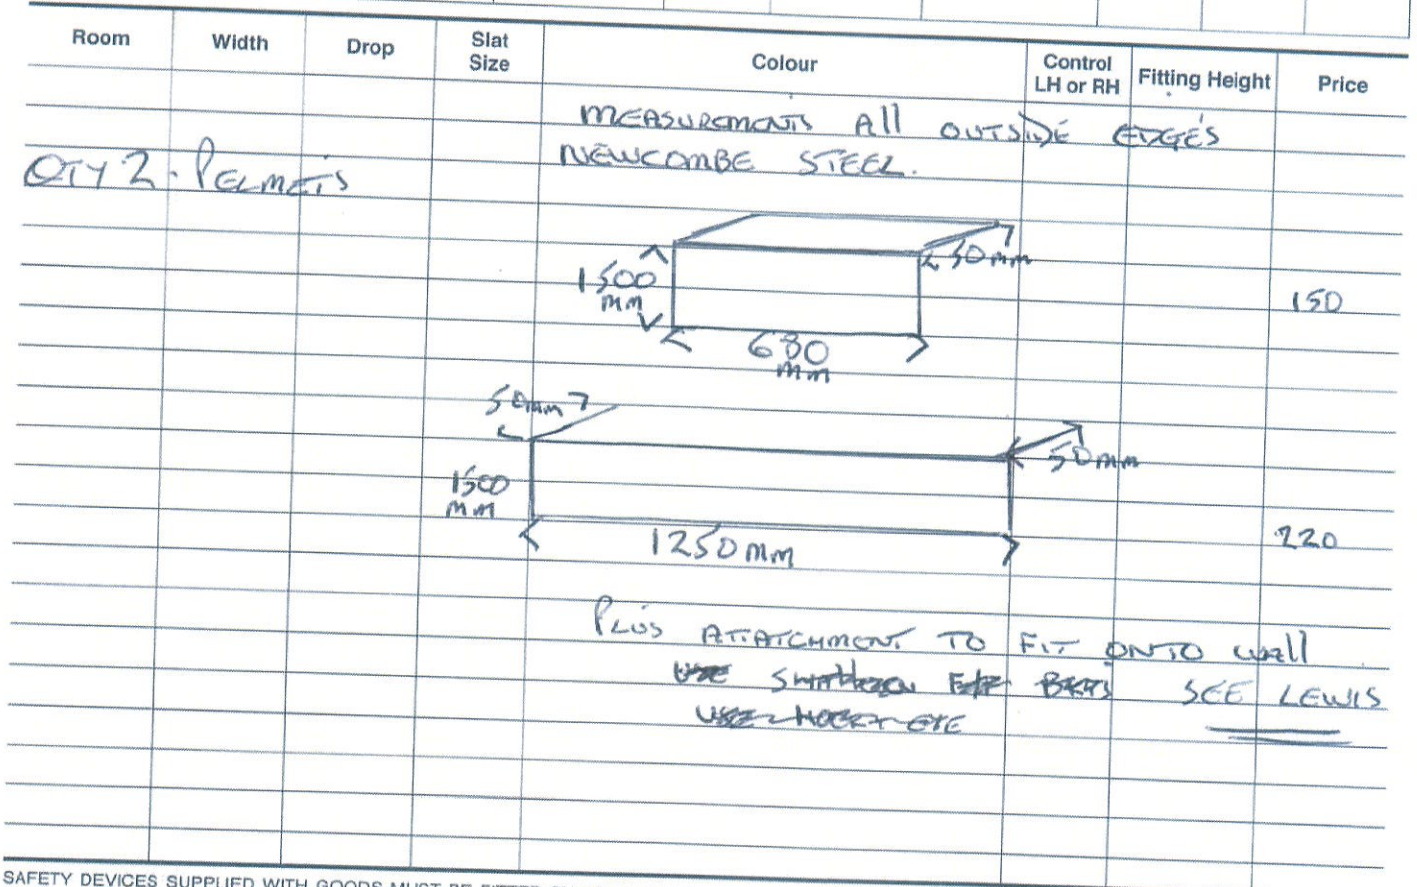 Room Width Drop Slat Size Colour Control LH or RH Fitting Height Price
MEASUREMENTS All OUTSIDE EDGE'S
NEWCOMBE STEEL.
QTY 2. PELMETS
50mm
1500
mm
150
680
mm
50mm
50mm
1500
mm
1250mm
220
PLUS ATTATCHMENT TO FIT ONTO WAll
SEE LEWIS
SAFETY DEVICES SUPPLIED WITH GOODS MUST BE